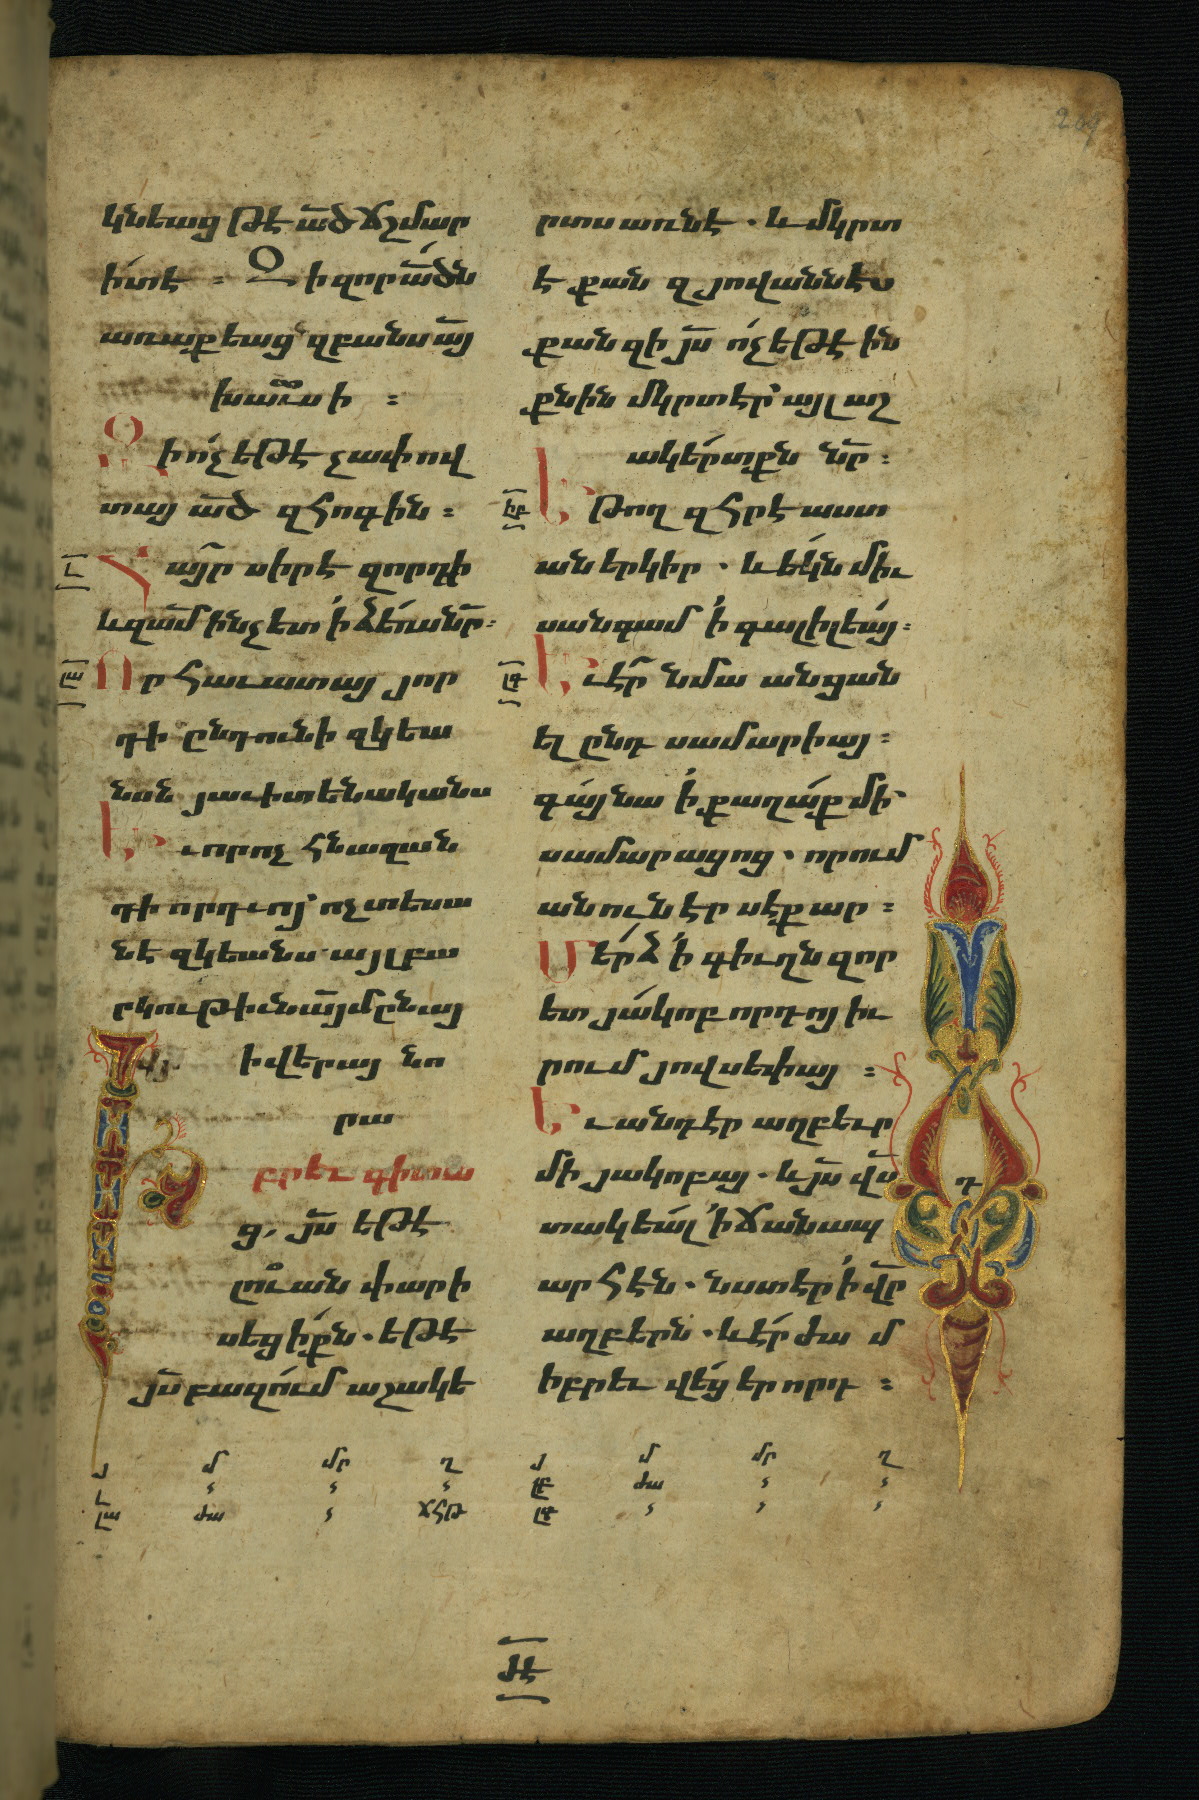 209
կնեաց թէ ած ճշմար
իտ է : Զի զոր ածն
առաքեաց զբանս այ
խաւսի :
Զի ոչ եթէ չափով
տայ ած զհոգին :
Լ
Հայր սիրէ զորդի
և զամ ինչ ետ ի ձեռս նր :
ԼԱ
Որ հաւատայ յոր
դի ընդունի զկեա
նսն յաւիտենականս
Եւ որ ոչ հնազան
դի որդւոյ ոչ տեսա
նէ զկեանս այլ բա
րկութիւն այ մընայ
ի վերայ նո
րա
Իբրեւ գիտա
ց, յս եթէ
լուան փարի
սեցիքն . եթէ
յս բազում աշակե
րտս առնէ . և մկրտ
է քան զյովաննէս
քանզի յս ոչ եթէ ին
քնին մկրտէր այլ աշ
ակերտքն նր :
ԼԲ
Եթող զհրէաստ
ան երկիր . և եկն միւ
սանգամ ի գալիլեայ :
ԼԳ
Եւ էր նմա անցան
ել ընդ սամարիայ :
գայ նա ի քաղաք մի
սամարացոց . որում
անուն էր սէքար :
Մերձ ի գիւղն զոր
ետ յակոբ որդոյ իւ
րում յովսեփայ :
Եւ անդ էր աղբեւր
մի յակոբայ . և յս վս
տակեալ ի ճանապ
արհէն . նստէր ի վր
աղբերն . և էր ժամ
իբրեւ վեց երորդ :
դ
յ մ մր ղ
Լ
ԼԱ ԺԱ ՃՀԹ
յ մ մր ղ
ԼԲ ԺԱ
ԼԳ
ԺԷ